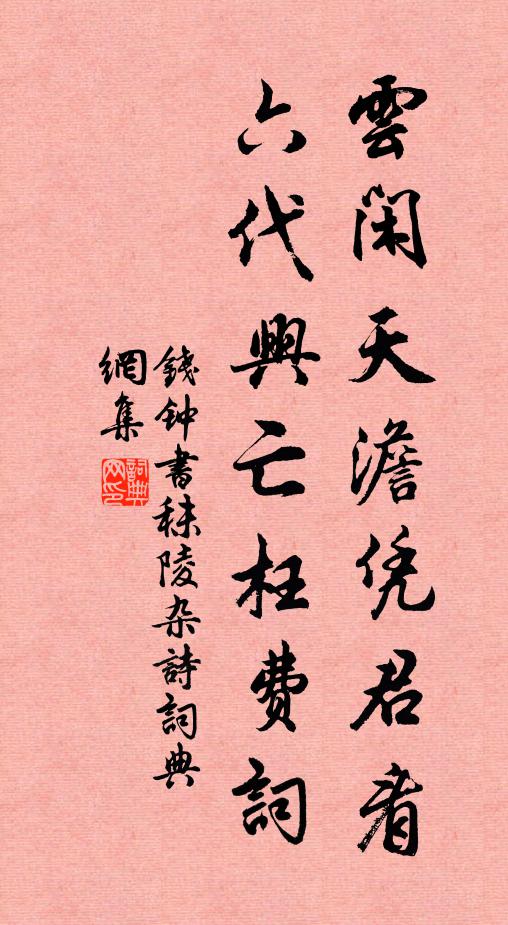 雲閑天澹凭君看
六代興亡枉費詞
錢钟書秣陵杂詩詞典
網集
詞典网印